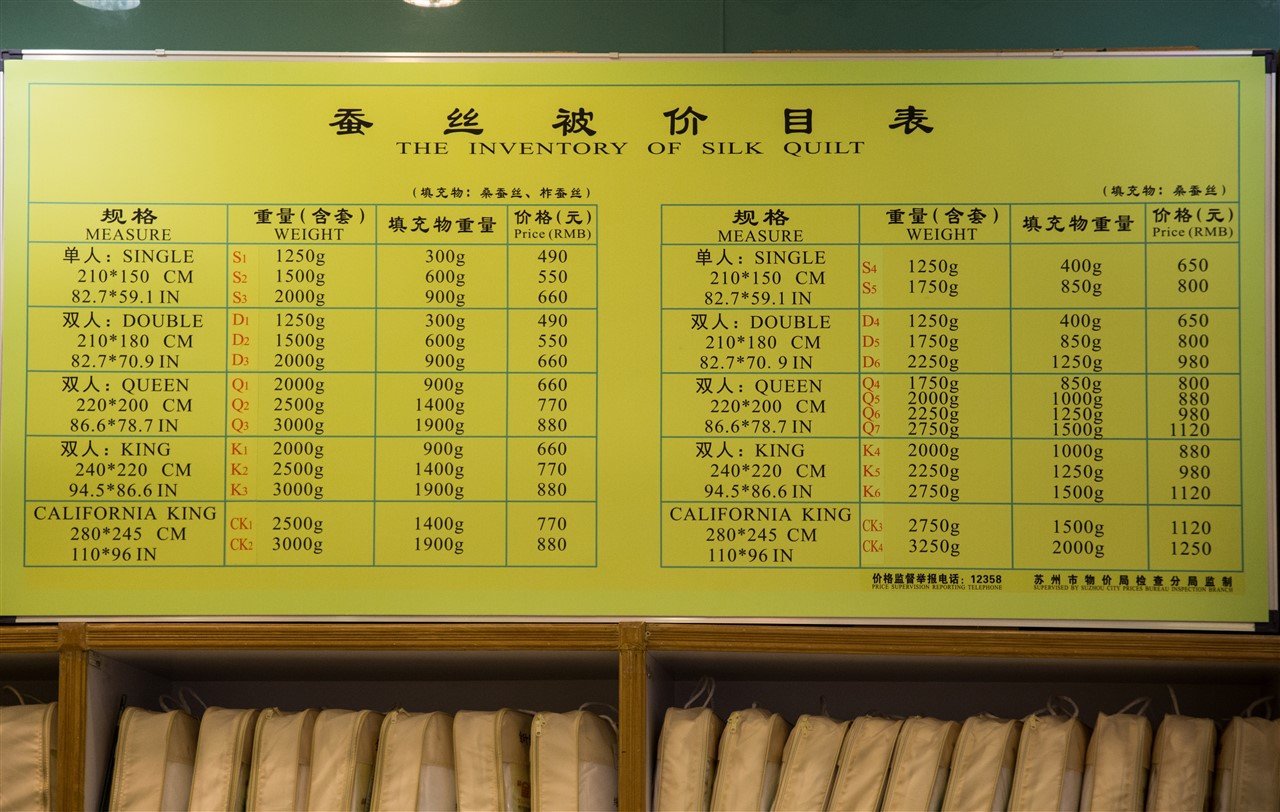 蚕丝被价目表
THE INVENTORY OF SILK QUILT
(填充物：桑蚕丝、柞蚕丝)
规格 重量(含套) 填充物重量 价格(元)
MEASURE WEIGHT Price (RMB)
单人：SINGLE S1 1250g 300g 490
210*150 CM S2 1500g 600g 550
82.7*59.1 IN S3 2000g 900g 660
双人：DOUBLE D1 1250g 300g 490
210*180 CM D2 1500g 600g 550
82.7*70.9 IN D3 2000g 900g 660
双人：QUEEN Q1 2000g 900g 660
220*200 CM Q2 2500g 1400g 770
86.6*78.7 IN Q3 3000g 1900g 880
双人：KING K1 2000g 900g 660
240*220 CM K2 2500g 1400g 770
94.5*86.6 IN K3 3000g 1900g 880
CALIFORNIA KING
280*245 CM CK1 2500g 1400g 770
110*96 IN CK2 3000g 1900g 880
(填充物：桑蚕丝)
规格 重量(含套) 填充物重量 价格(元)
MEASURE WEIGHT Price (RMB)
单人：SINGLE S4 1250g 400g 650
210*150 CM S5 1750g 850g 800
82.7*59.1 IN
双人：DOUBLE D4 1250g 400g 650
210*180 CM D5 1750g 850g 800
82.7*70. 9 IN D6 2250g 1250g 980
双人：QUEEN Q4 1750g 850g 800
220*200 CM Q5 2000g 1000g 880
Q6 2250g 1250g 980
86.6*78.7 IN Q7 2750g 1500g 1120
双人：KING K4 2000g 1000g 880
240*220 CM K5 2250g 1250g 980
94.5*86.6 IN K6 2750g 1500g 1120
CALIFORNIA KING
280*245 CM CK3 2750g 1500g 1120
110*96 IN CK4 3250g 2000g 1250
价格监督举报电话：12358 苏州市物价局检查分局监制
PRICE SUPERVISION REPORTING TELEPHONE SUPERVISED BY SUZHOU CITY PRICES BUREAU INSPECTION BRANCH